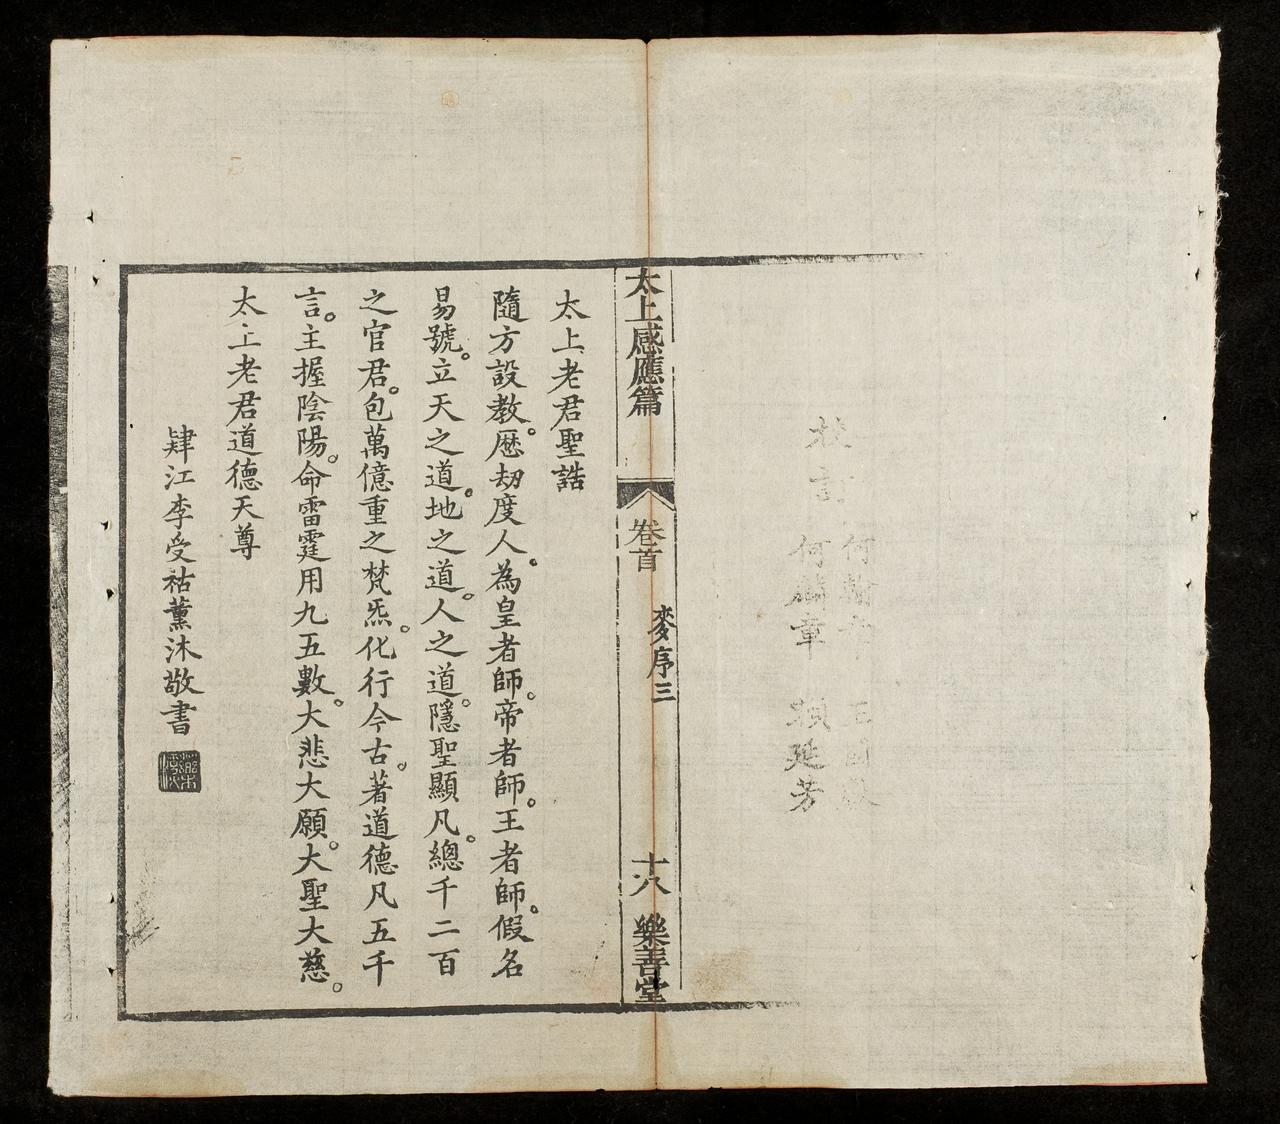 校訂
何
何麟章 顏延芳
太上感應篇
卷首
麥序三
十八
樂善堂
太上老君聖誥
隨方設教。歷劫度人。為皇者師。帝者師。王者師。假名
易號。立天之道。地之道。人之道。隱聖顯凡。總千二百
之官君。包萬億重之梵炁。化行今古。著道德凡五千
言。主握陰陽。命雷霆用九五數。大悲大願。大聖大慈。
太上老君道德天尊
肄江李受祜薰沐敬書